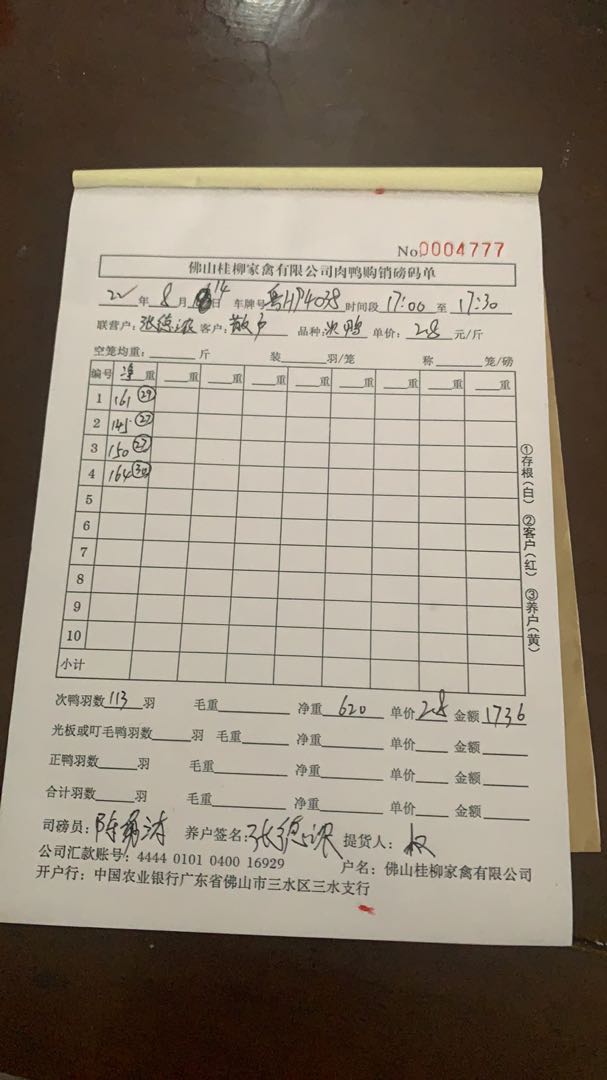 No.0004777
佛山桂柳家禽有限公司肉鸭购销磅码单
22年8月14日 车牌号粤HP4038时间段17:00至17:30
联营户:张德浓 客户:散户 品种:次鸭 单价:2.8元/斤
空笼均重:斤 装羽/笼 称笼/磅
编号 净重 重 重 重 重 重 重 重
1 161 29
2 145 27
3 150 27
4 164 30
5
6
7
8
9
10
小计
①存根(白) ②客户(红) ③养户(黄)
次鸭羽数113羽 毛重 净重620 单价2.8 金额1736
光板或叮毛鸭羽数羽 毛重 净重 单价 金额
正鸭羽数羽 毛重 净重 单价 金额
合计羽数羽 毛重 净重 单价 金额
司磅员: 养户签名:张德浓 提货人:权
公司汇款账号:4444 0101 0400 16929 户名:佛山桂柳家禽有限公司
开户行:中国农业银行广东省佛山市三水区三水支行